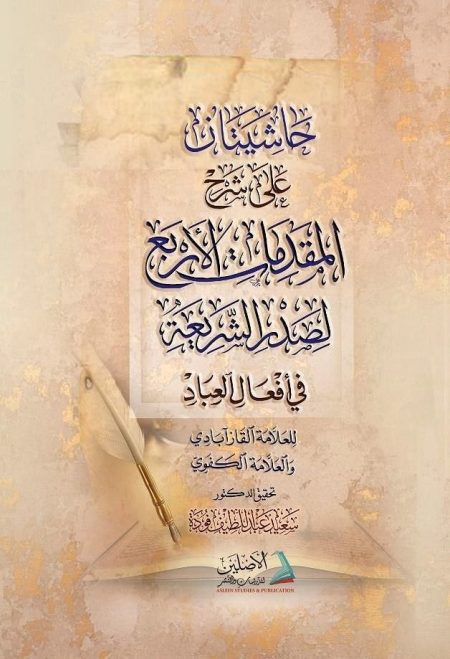 حاشيتان
على شرح
المقدمات الأربع
لصدر الشريعة
في أفعال العباد
للعلامة القازآبادي
والعلامة الكفوي
تحقيق الدكتور
سعيد عبد اللطيف فودة
الأصلين
للدراسات والنشر
ASLEIN STUDIES & PUBLICATION